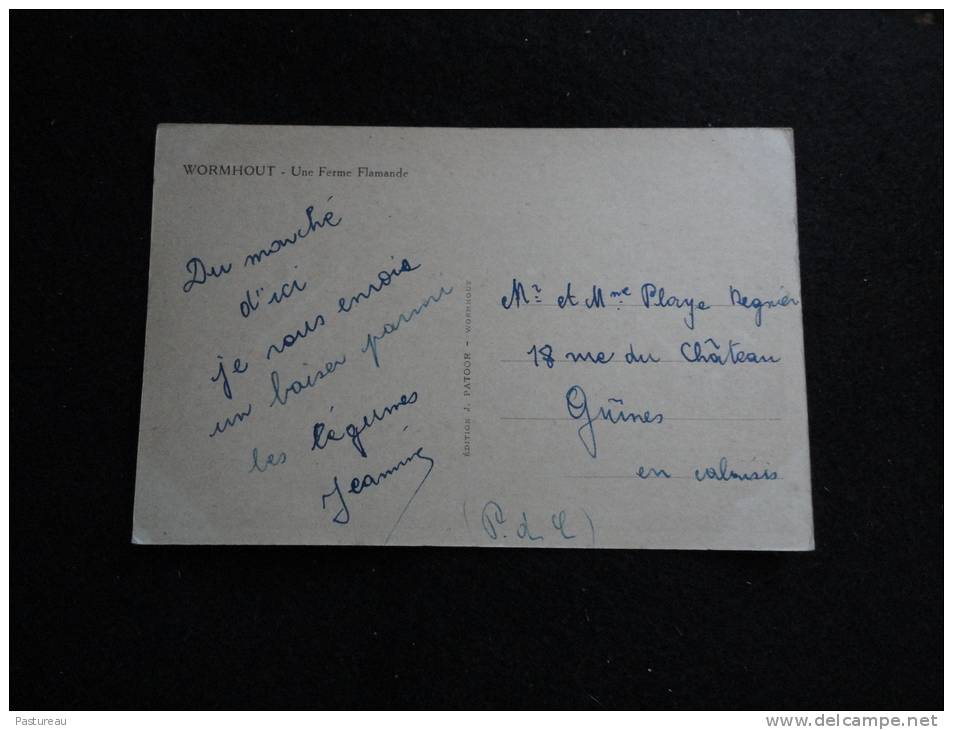 WORMHOUT - Une Ferme Flamande
Du marché
d'ici
je vous envoie
un baiser parmi
les légumes
Jeannine
ÉDITION J. PATOOR - WORMHOUT
Mr et Mme Playe Regnier
18 rue du Château
Guînes
en calaisis
(P. d. C)
Pastureau
www.delcampe.net